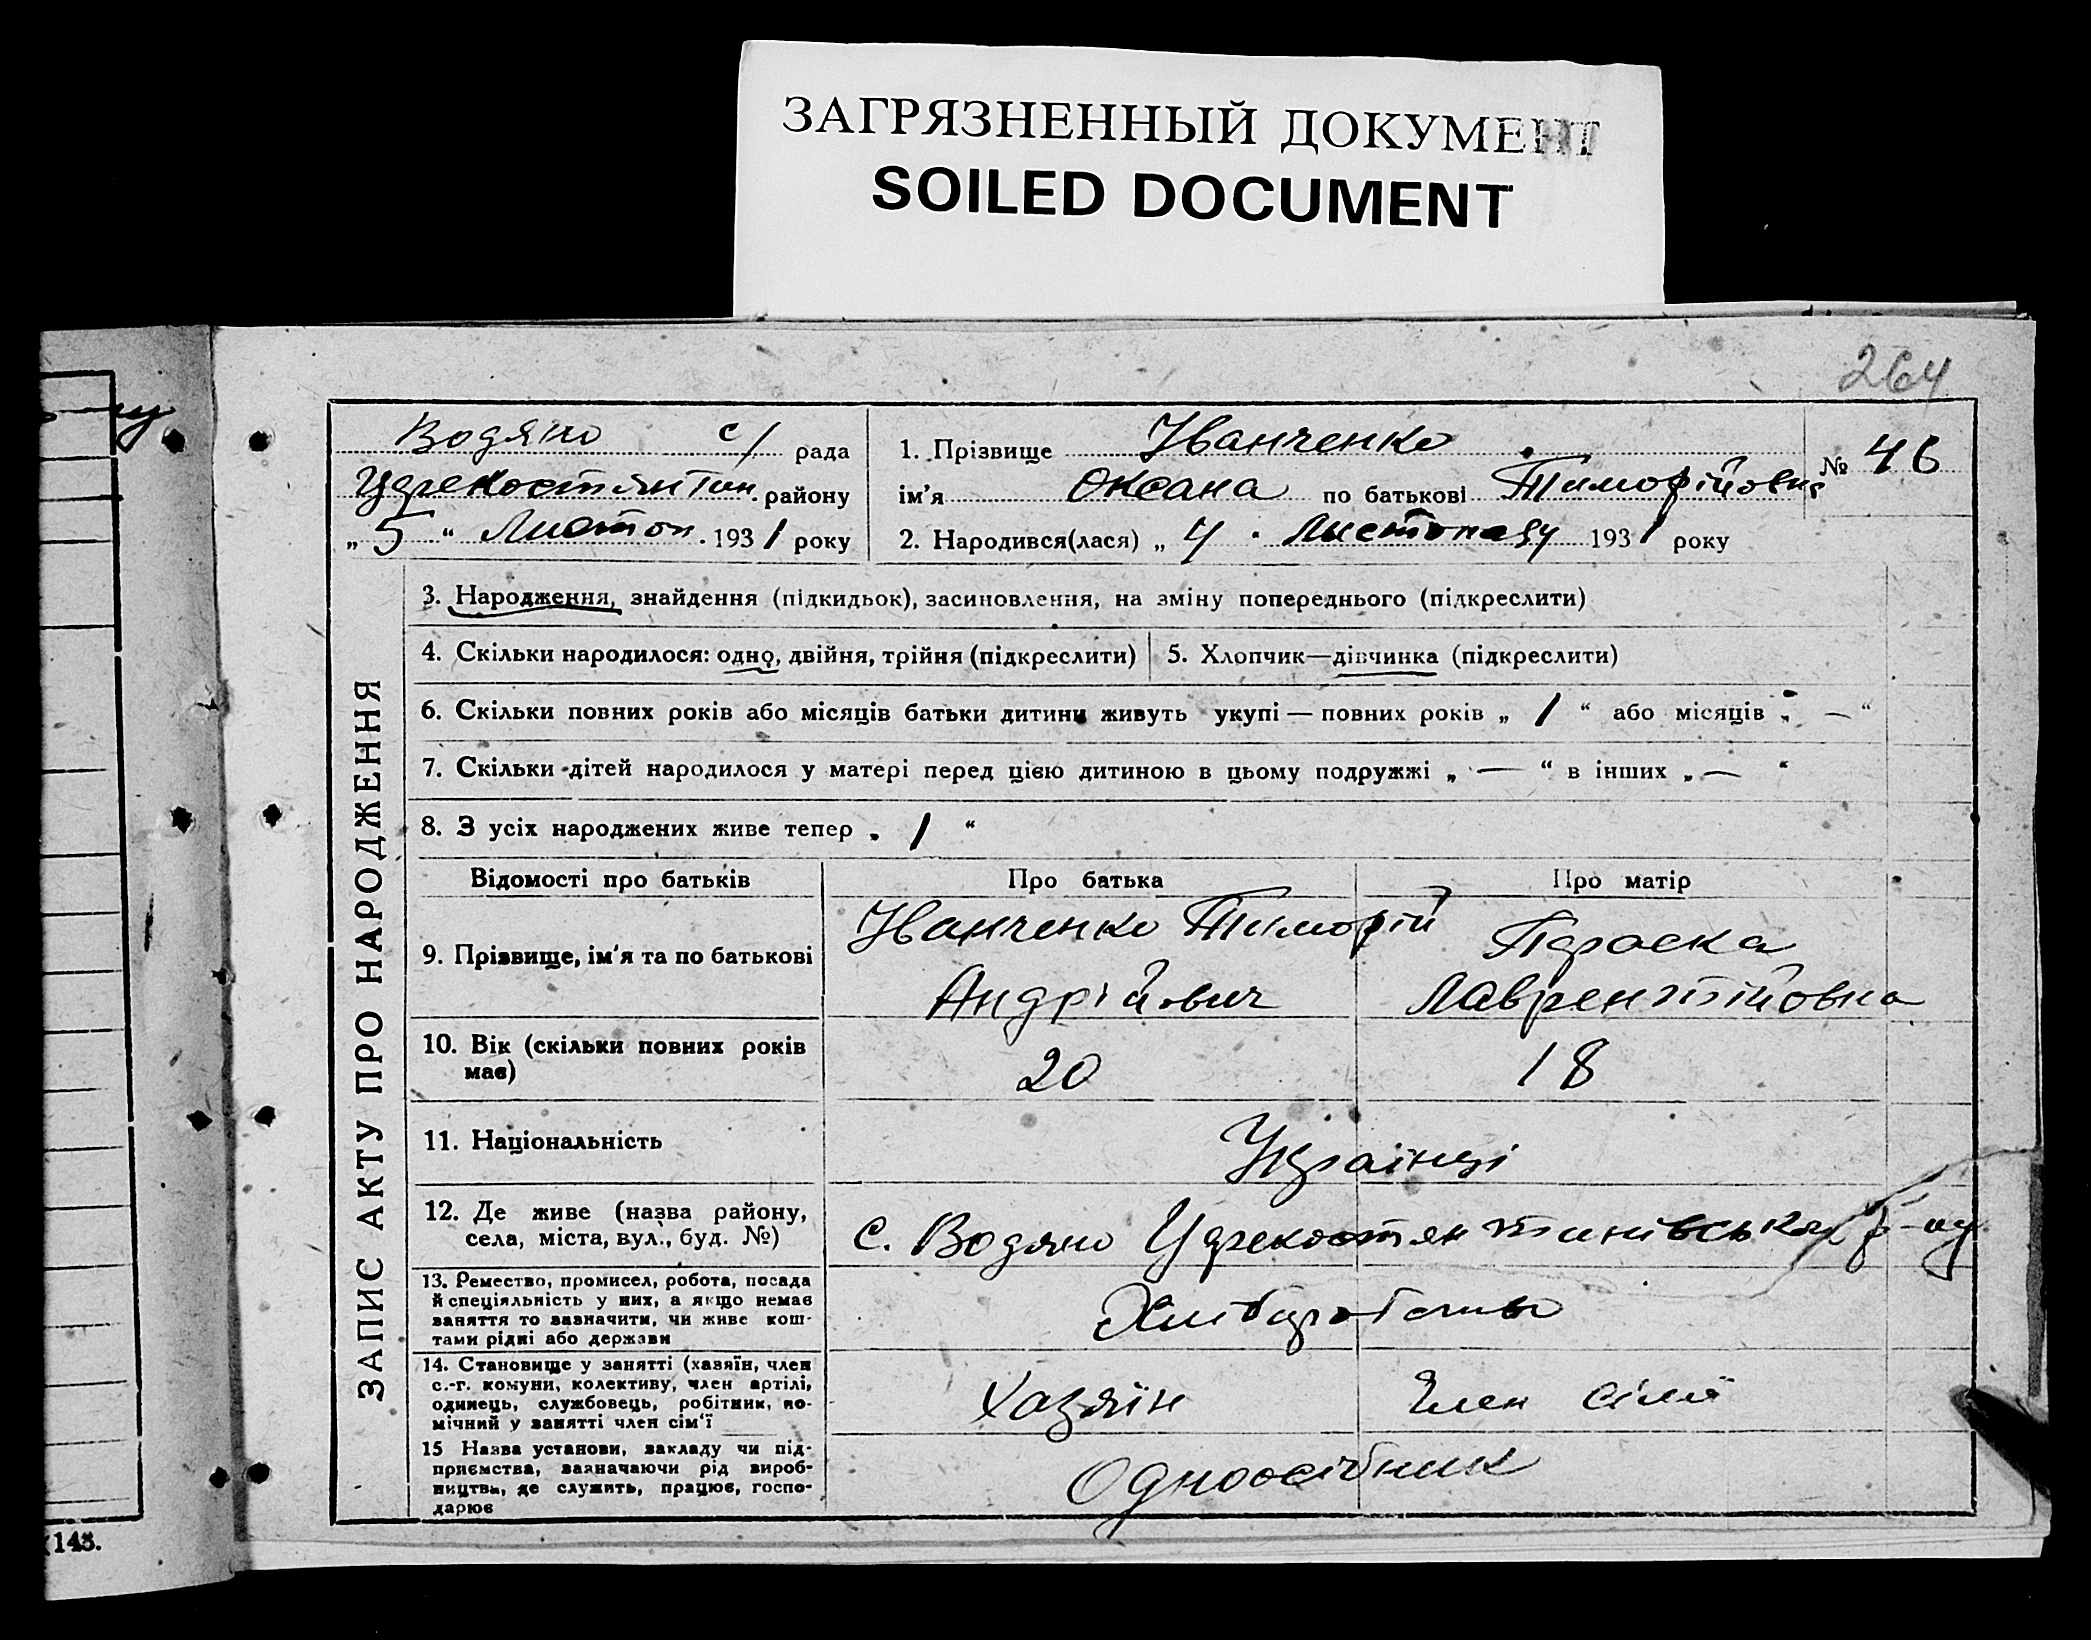 ЗАГРЯЗНЕННЫЙ ДОКУМЕНТ
SOILED DOCUMENT
264
Водяно с/ рада
районy
„ 5 “ Листоп. 1931 року
1. Прізвище Іванченко
№ 46
ім’я Оксана по батькові Тимофійовна
2. Народився(лася) „ 4 . Листопаду 1931 року
ЗАПИС АКТУ ПРО НАРОДЖЕННЯ
3. Народження, знайдення (підкидьок), засиновлення, на зміну попереднього (підкреслити)
4. Скільки народилося: одно, двійня, трійня (підкреслити)
5. Хлопчик—дівчинка (підкреслити)
6. Скільки повних років або місяців батьки дитини живуть укупі — повних років „ 1 “ або місяців „ — “
7. Скільки дітей народилося у матері перед цією дитиною в цьому подружжі „ — “ в інших „ — “
8. З усіх народжених живе тепер „ 1 “
Відомості про батьків
Про батька
Про матір
9. Прізвище, ім’я та по батькові
Іванченко Тимофій
Андрійович
Параска
Лаврентійовна
10. Вік (скільки повних років
має)
20
18
11. Національність
Українці
12. Де живе (назва району,
села, міста, вул., буд. №)
с. Водяно
13. Ремество, промисел, робота, посада
й спеціяльність у них, а якщо немає
заняття то зазначити, чи живе кош-
тами рідні або держави
14. Становище у занятті (хазяїн, член
с.-г. комуни, колективу, член артілі,
одинець, службовець, робітник, по-
мічний у занятті член сім’ї
Хазяїн
Член сімї
15 Назва установи, закладу чи під-
приємства, зазначаючи рід вироб-
ництва, де служить, працює, госпо-
дарює
Одноосібник
143.